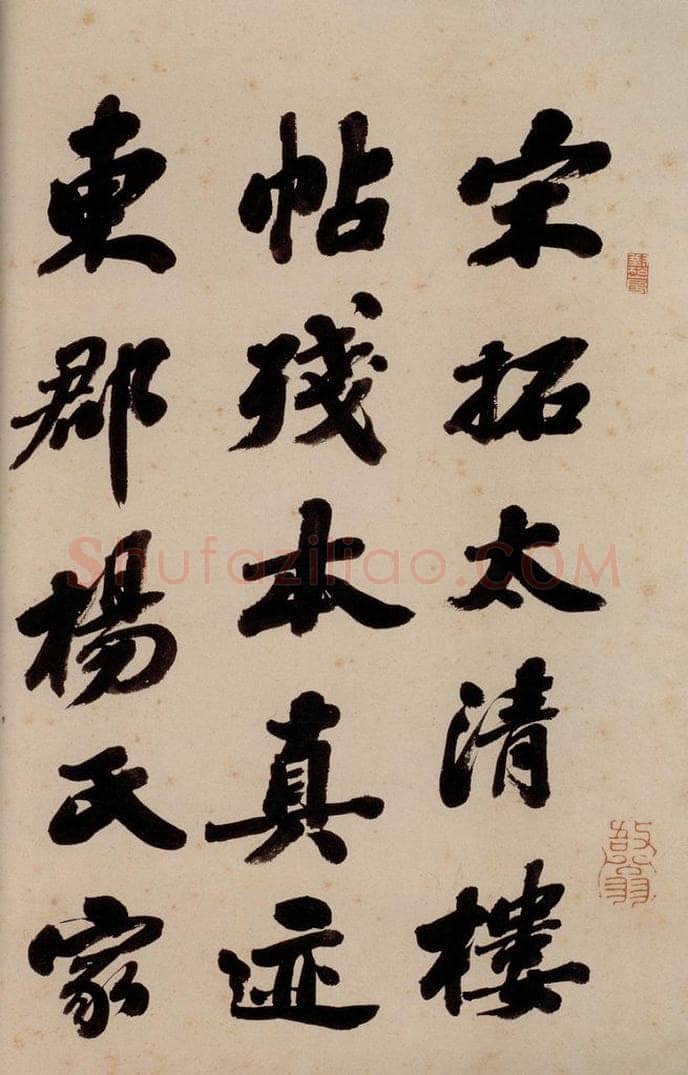 宋拓太清樓
帖殘本真迹
東郡楊氏家
Shufaziliao.COM